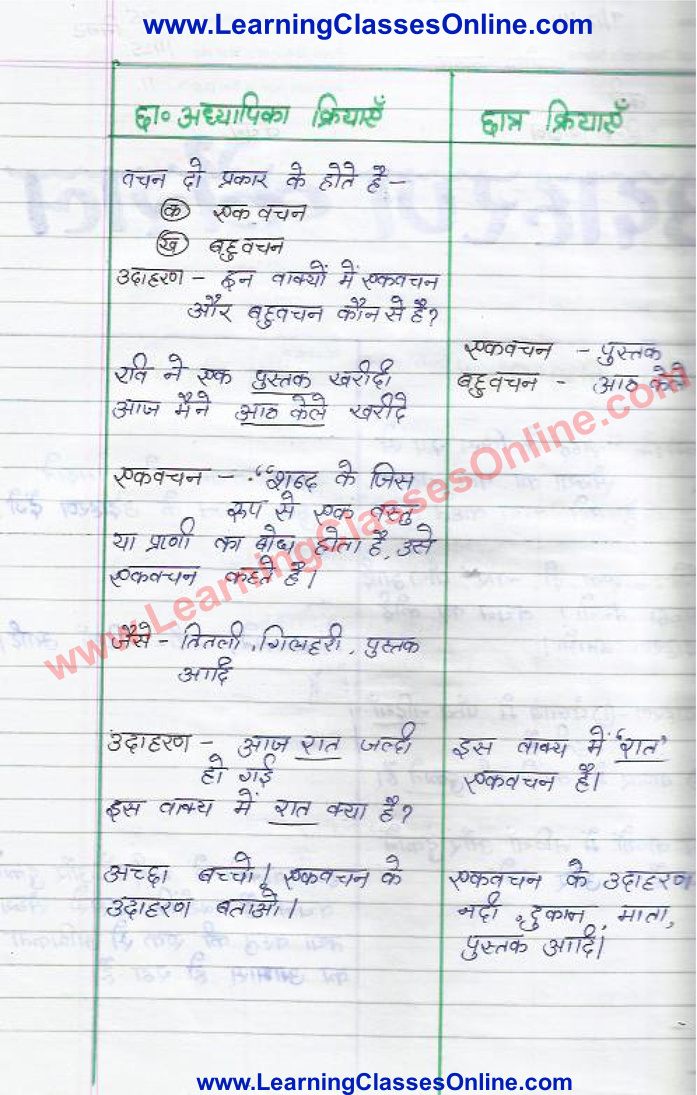 www.LearningClassesOnline.com
छा० अध्यापिका क्रियाएँ
छात्र क्रियाएँ
वचन दो प्रकार के होते है –
(क) एक वचन
(ख) बहुवचन
उदाहरण – इन वाक्यों में एकवचन
और बहुवचन कौन से है?
रवि ने एक पुस्तक खरीदी
आज मैने आठ केले खरीदे
एकवचन – पुस्तक
बहुवचन – आठ केले
एकवचन – "शब्द के जिस
रूप से एक वस्तु
या प्राणी का बोध होता है, उसे
एकवचन कहते है।
जैसे – तितली, गिलहरी, पुस्तक
आदि
उदाहरण – आज रात जल्दी
हो गई
इस वाक्य में रात क्या है?
इस वाक्य में 'रात'
एकवचन है।
अच्छा बच्चो! एकवचन के
उदाहरण बताओ।
एकवचन के उदाहरण
नदी, दुकान, माता,
पुस्तक आदि।
www.LearningClassesOnline.com
www.LearningClassesOnline.com